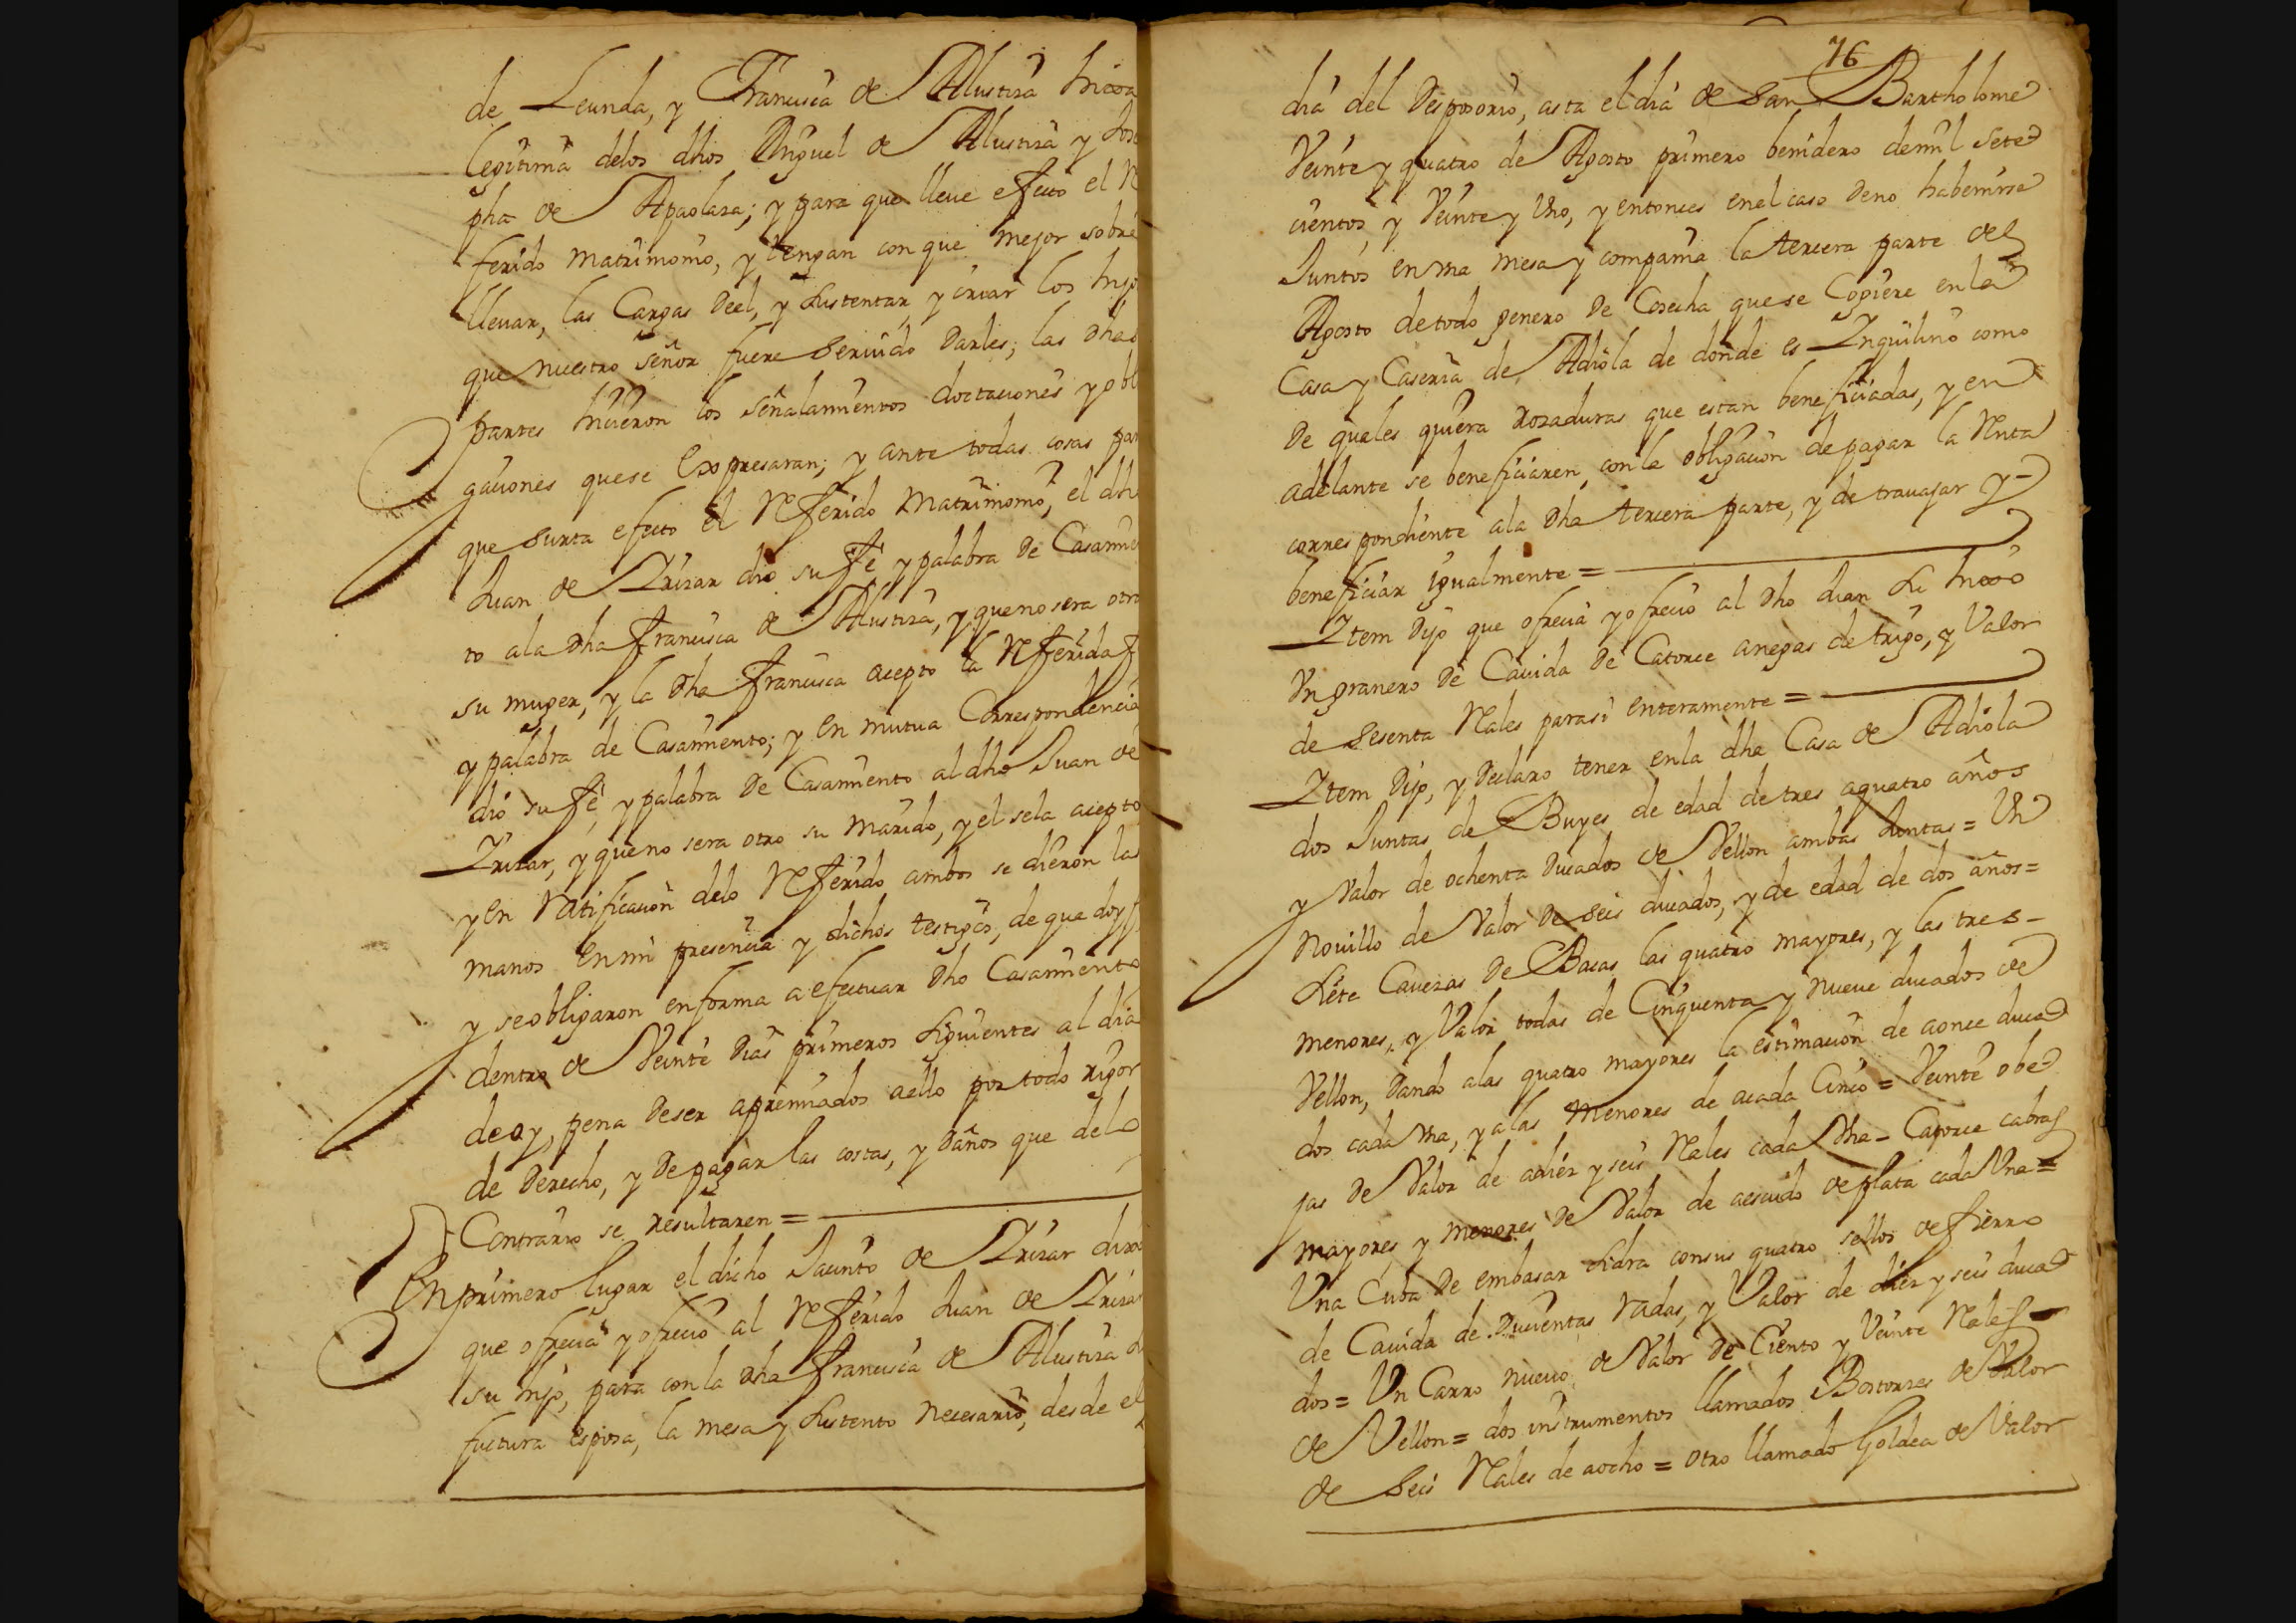 de Leunda, y Francisca de Alustiza hixa
legitima delos dhos Miguel de Alustiza y Jose
pha de Apaolaza; y para que lleue efecto el Re
ferido Matrimonio, y tengan con que mejor sobre
lleuar, las Cargas deel, y sustentar, y criar los hijo
que nuestro señor fuere seruido Darles; las dhas
partes hiçieron los señalamientos doctaciones y obl
gaciones quese Expresaran; y ante todas cosas par
que surta efecto el Referido Matrimonio, el dho
Juan de Yrizar dio su Fé y palabra de Casamie
to ala dha Francisca de Alustiza, y que no sera otra
su muger, y la dha Francisca acepto la Referida f
y palabra de Casamiento; y en mutua Correspondencia
dió su Fé, y palabra de Casamiento al dho Juan de
Yrizar, y que no sera otro su Marido, y el sela acepto
y en Ratificacion delo Referido ambos se dieron las
manos En mi presencia y dichos testigos, de que doy f
y se obligaron en forma a efectuar dho Casamiento
dentro de Veinte dias primeros siguientes al dia
de oy, pena deser apremiados aello por todo rigor
de derecho, y de pagar las costas, y daños que delo
Contrario se resultaren =
En primero lugar el dicho Jacinto de Yrizar dixo
que ofrecia y ofrecio al Referido Juan de Yrizar
su hijo, para con la dha Francisca de Alustiza su
fuctura esposa, la mesa y sustento necesario, desde el
76
dia del desposorio, asta el dia de San Bartholome
Veinte y quatro de Agosto primero benidero de mil sete
cientos, y Veinte y Vno, y entonces en el caso deno habenirse
Juntos en vna mesa y compañia la tercera parte del
Agosto de todo genero de Cosecha que se Cogiere en la
Casa y Caseria de Adiola de donde es Ynquilino como
de quales quiera rozaduras que estan beneficiadas, y en
adelante se beneficiaren, con la obligacion de pagar la Renta
correspondiente ala dha tercera parte, y de trauajar y
beneficiar igualmente =
Ytem dijo que ofrecia y ofrecio al dho Juan su hixo
Vn granero de Cauida de Catorce anegas de trigo, y Valor
de sesenta Reales para si enteramente =
Ytem dijo, y declaro tener en la dha Casa de Adiola
dos Juntas de Buyes de edad de tres aquatro años
y Valor de ochenta ducados de Vellon ambas Juntas = Vn
Nouillo de Valor de seis ducados, y de edad de dos años =
Siete Cauezas de Bacas las quatro mayores, y las tres
menores, y Valor todas de Cinquenta y nueue ducados de
Vellon, dando alas quatro mayores la estimacion de aonce duca
dos cada vna, y alas Menores de acada Cinco = Veinte obe
jas de Valor de adiez y seis Reales cada Vna = Catorce cabras
mayores, y menores de Valor de aescudo de plata cada Vna =
Vna Cuba de embasar sidra con sus quatro sellos de fierro
de Cauida de Ducientas Vadas, y Valor de diez y seis duca
dos = Vn Carro nueuo, de Valor de Ciento y Veinte Reales
de Vellon = dos instrumentos llamados Bostorzes de Valor
de Seis Reales de aocho = otro llamado Goldea de Valor